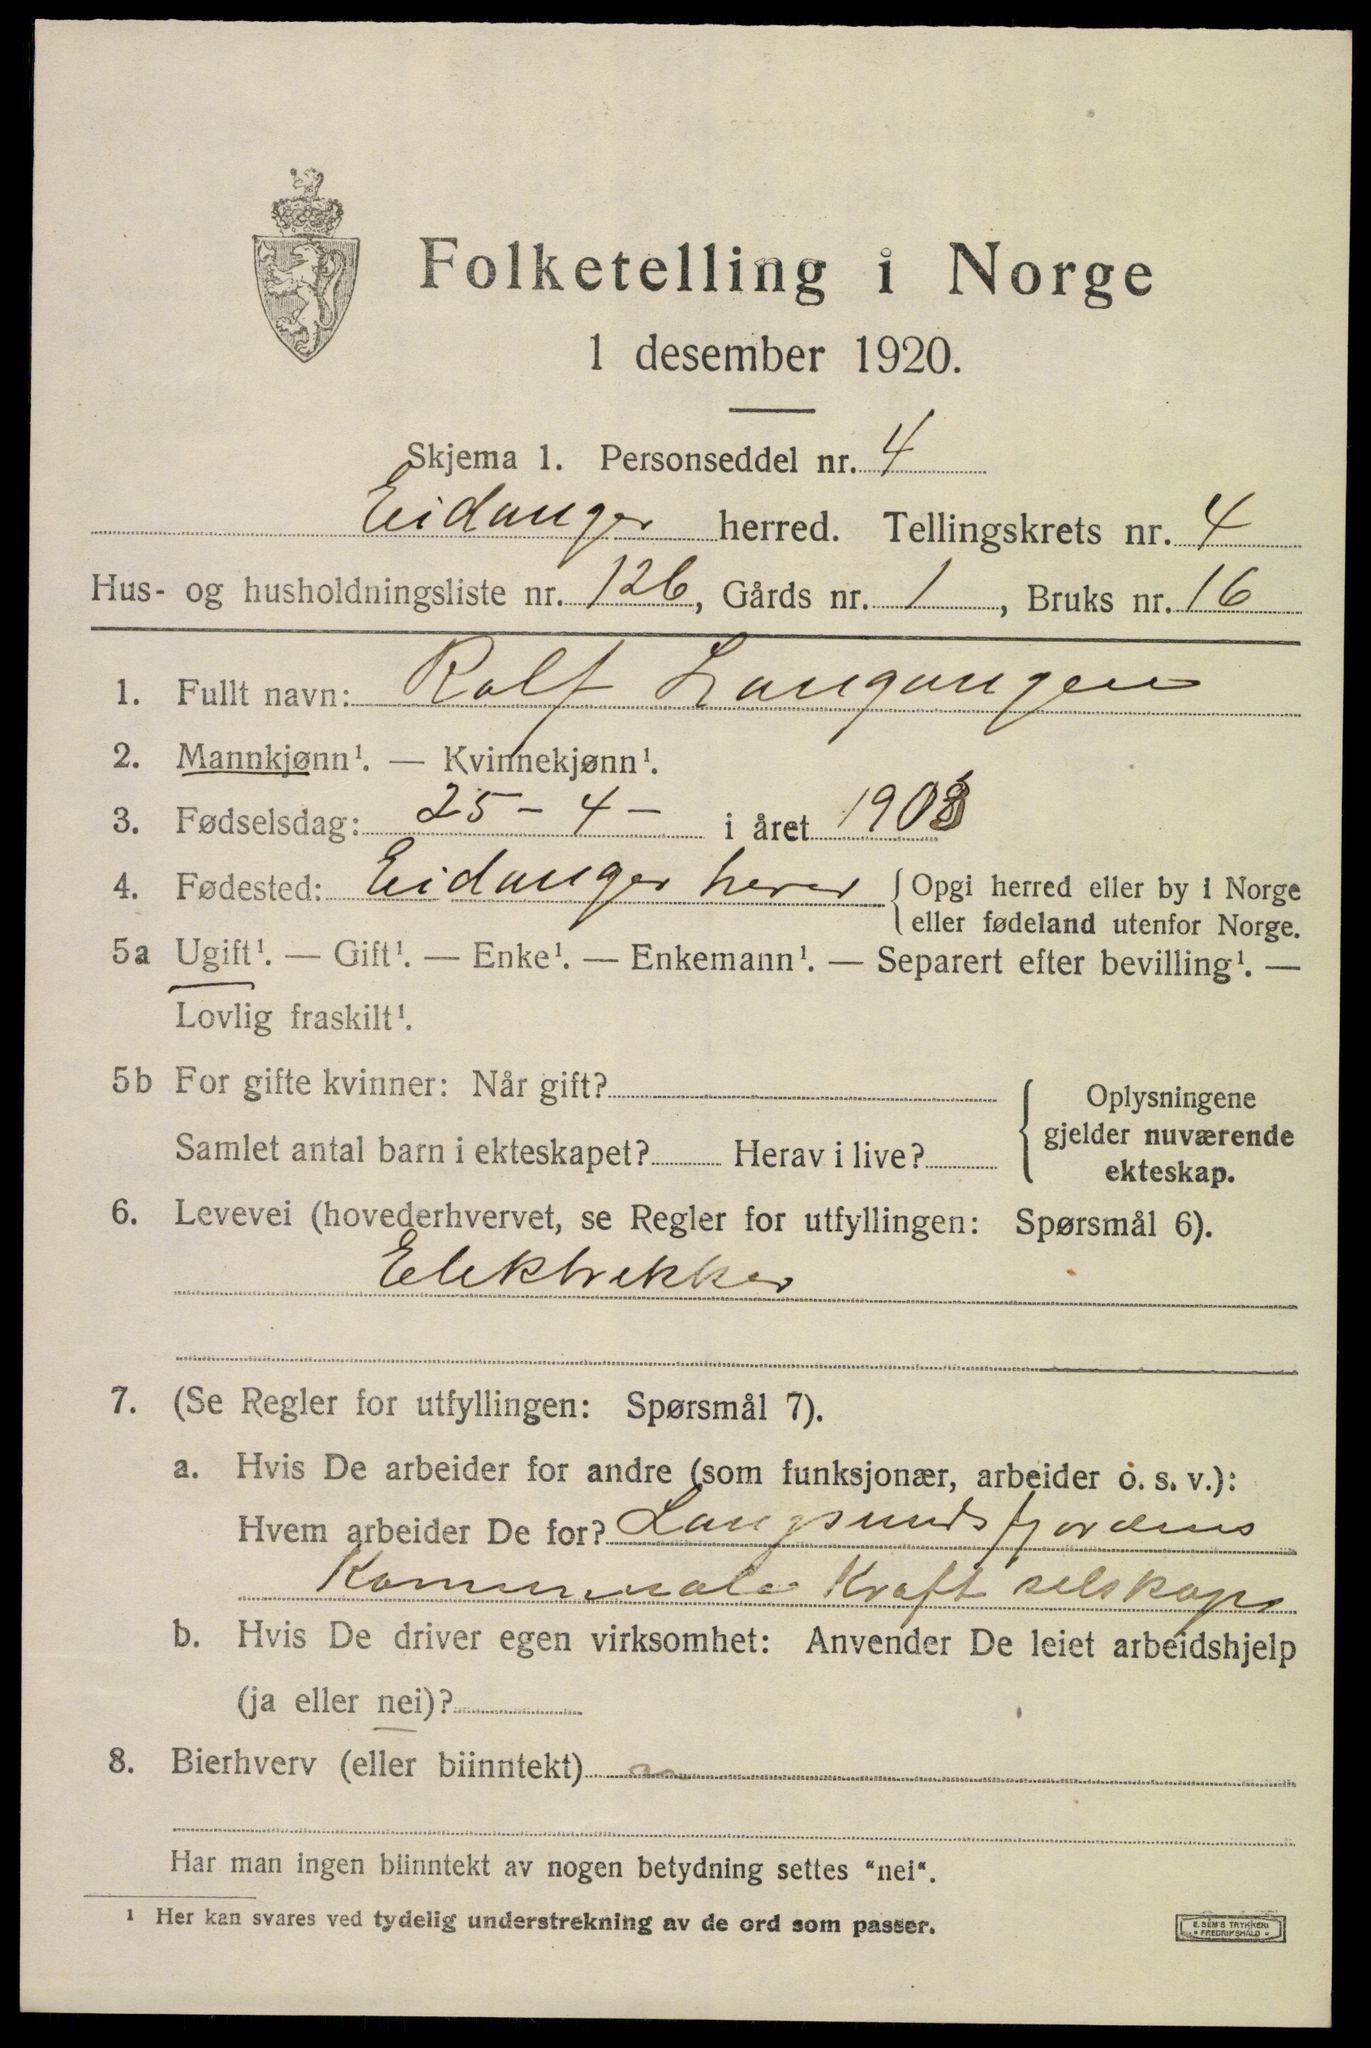 Folketelling i Norge
1 desember 1920.
Skjema 1. Personseddel nr. 4
Eidanger herred. Tellingskrets nr. 4
Hus- og husholdningsliste nr. 126, Gårds nr. 1, Bruks nr. 16
1. Fullt navn: Rolf Langangen
2. Mannkjønn¹. — Kvinnekjønn¹.
3. Fødselsdag: 25 - 4 - i året
4. Fødested: Eidanger { Opgi herred eller by i Norge
eller fødeland utenfor Norge.
5a Ugift¹. — Gift¹. — Enke¹. — Enkemann¹. — Separert efter bevilling¹. —
Lovlig fraskilt¹.
5b For gifte kvinner: Når gift? { Oplysningene
gjelder nuværende
Samlet antal barn i ekteskapet? Herav i live?
ekteskap.
6. Levevei (hovederhvervet, se Regler for utfyllingen: Spørsmål 6).
Elektrikker
7. (Se Regler for utfyllingen: Spørsmål 7).
a. Hvis De arbeider for andre (som funksjonær, arbeider o. s. v.):
Hvem arbeider De for? Langsundsfjordens
Kommunale Kraft selskap
b. Hvis De driver egen virksomhet: Anvender De leiet arbeidshjelp
(ja eller nei)?
8. Bierhverv (eller biinntekt)
Har man ingen biinntekt av nogen betydning settes "nei".
¹ Her kan svares ved tydelig understrekning av de ord som passer.
E. SEM'S TRYKKERI
FREDRIKSHALD